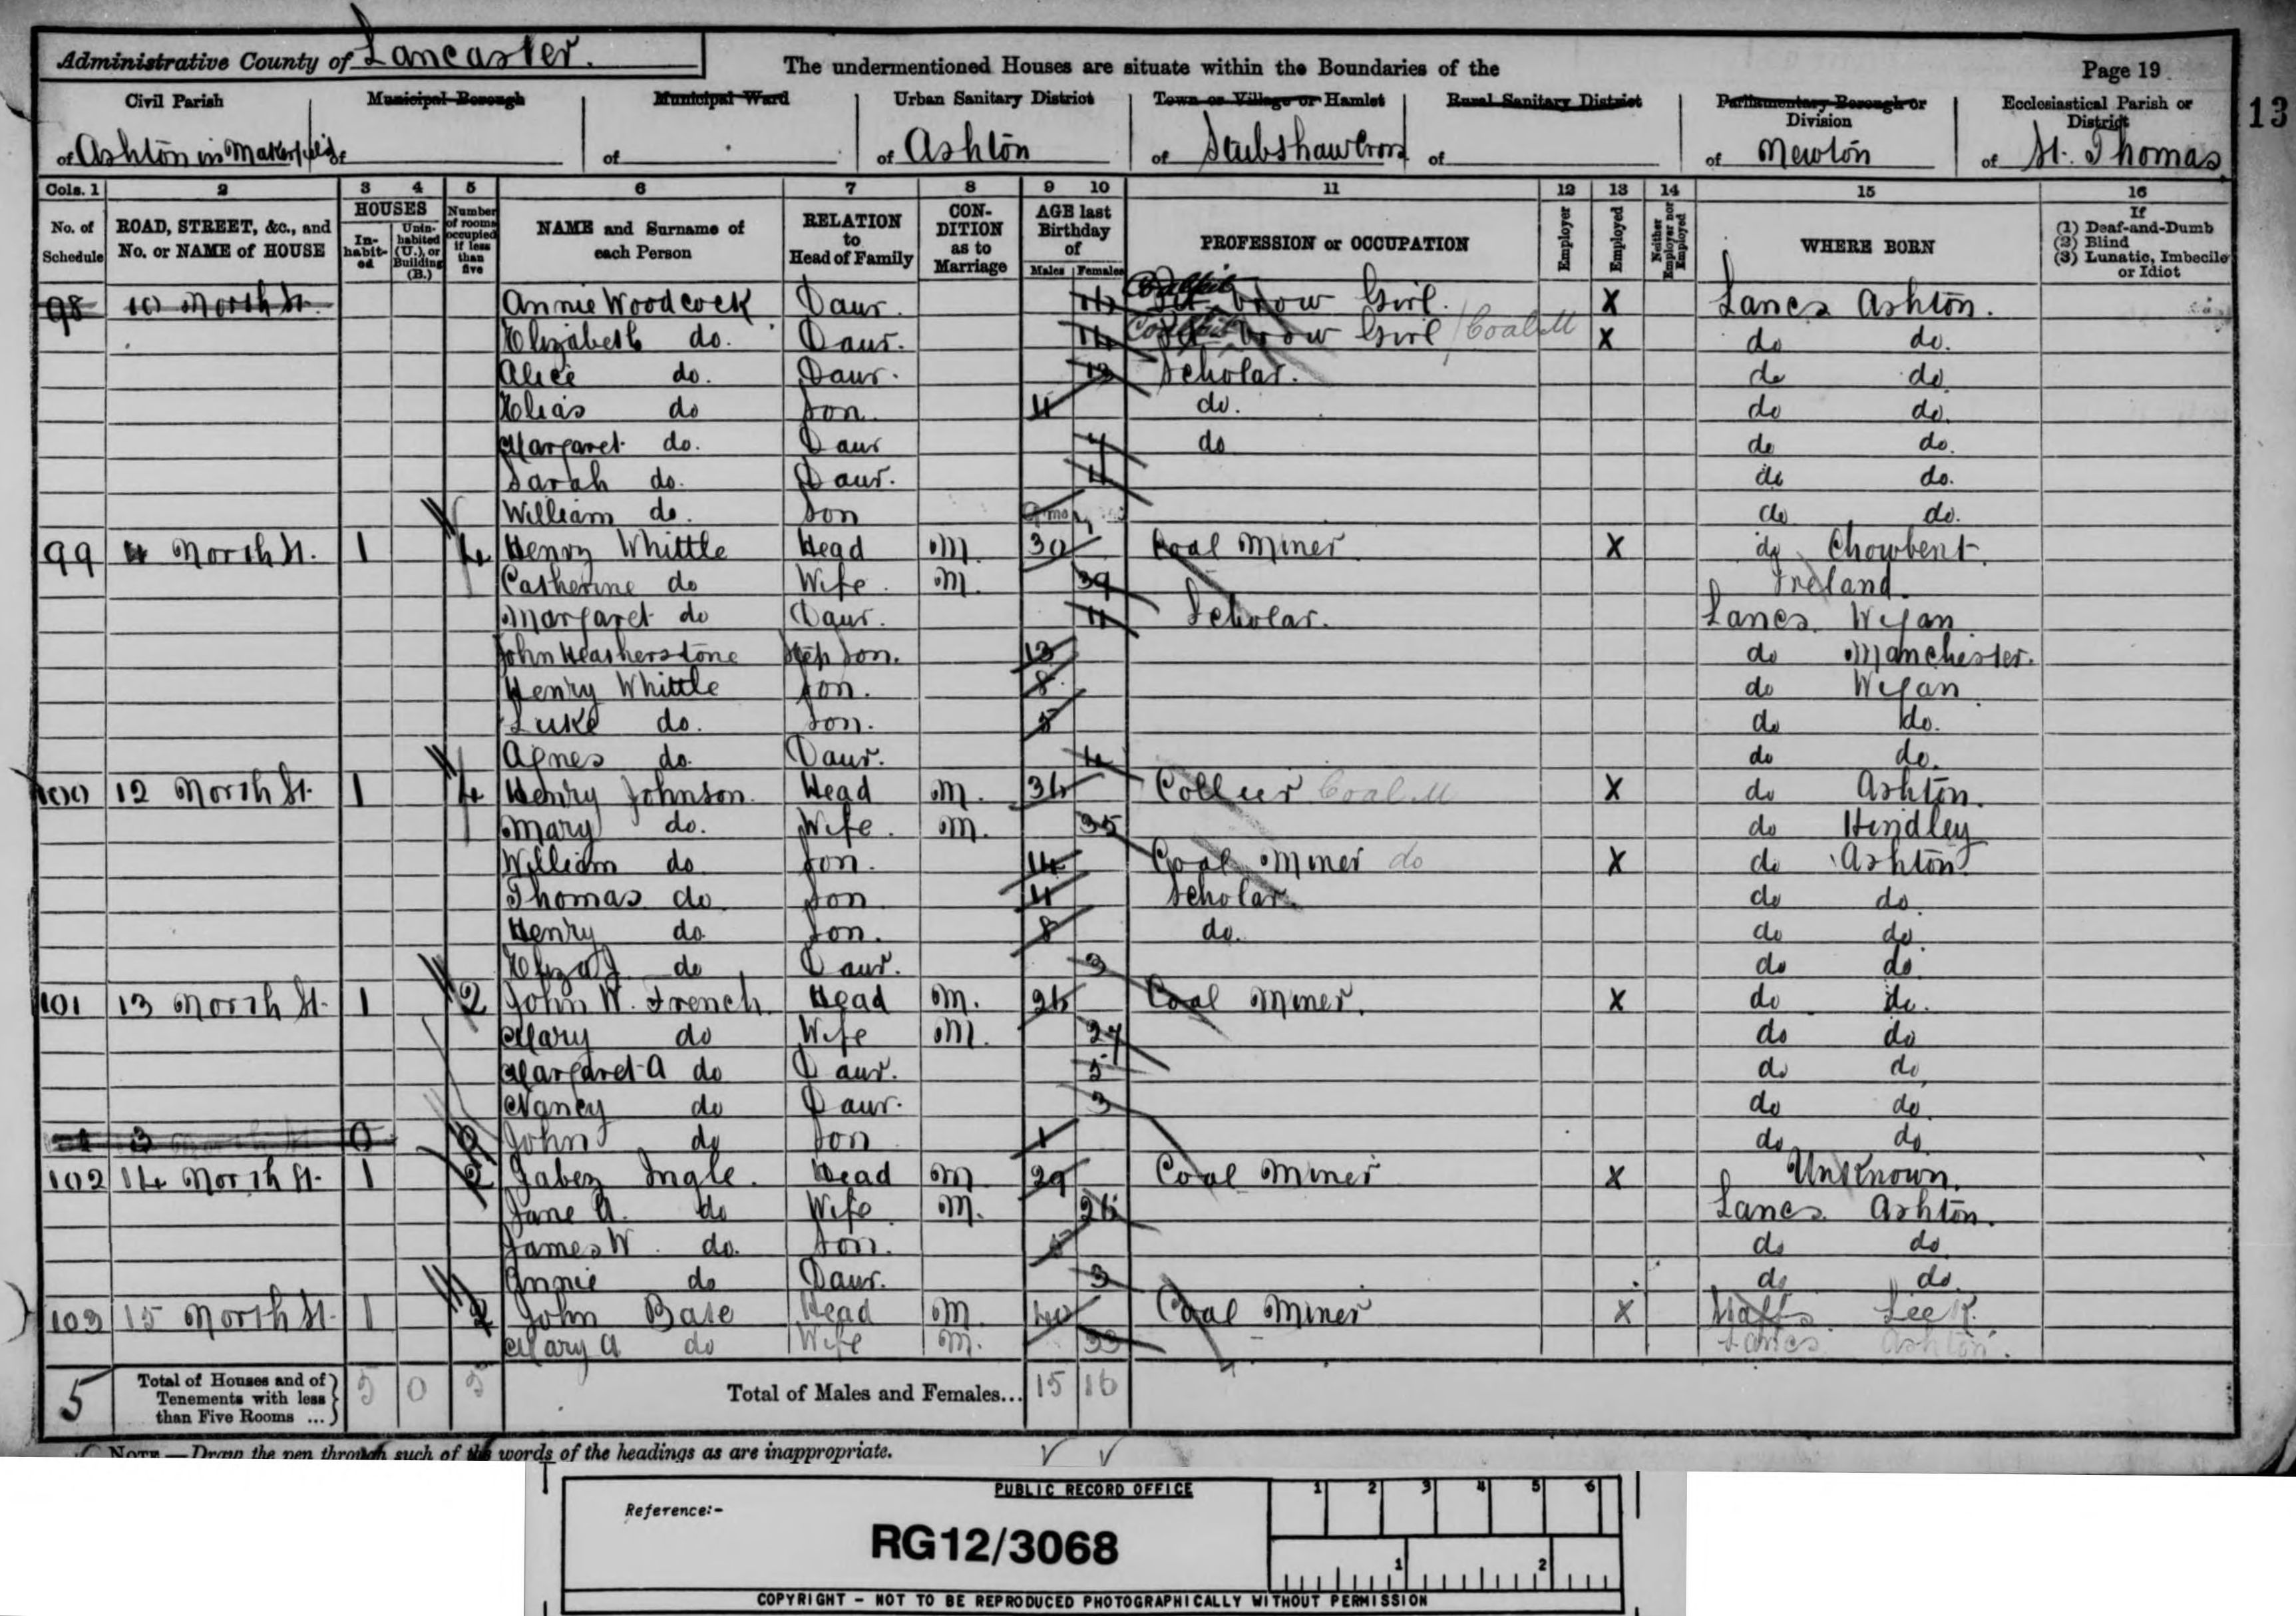 Administrative County of Lancaster.
The undermentioned Houses are situate within the Boundaries of the
Page 19
13
Civil Parish
of Ashton in Makerfield
Municipal Borough
of
Municipal Ward
of
Urban Sanitary District
of Ashton
Town or Village or Hamlet
of Stubshaw Cross
Rural Sanitary District
of
Parliamentary Borough or Division
of Newton
Ecclesiastical Parish or District
of St. Thomas
Cols. 1 2 3 4 5 6 7 8 9 10 11 12 13 14 15 16
No. of Schedule
ROAD, STREET, &c., and No. or NAME of HOUSE
HOUSES
In-habit-ed
Unin-habited (U.), or Building (B.)
Number of rooms occupied if less than five
NAME and Surname of each Person
RELATION to Head of Family
CON-DITION as to Marriage
AGE last Birthday of
Males Females
PROFESSION or OCCUPATION
Employer
Employed
Neither Employer nor Employed
WHERE BORN
If
(1) Deaf-and-Dumb
(2) Blind
(3) Lunatic, Imbecile or Idiot
98 10 North St. Annie Woodcock Daur. 16 Coalpit brow Girl. X Lancs Ashton.
Elizabeth do. Daur. 14 Coalpit brow Girl / Coal M X do do.
Alice do. Daur. 13 Scholar. do do
Elias do Son. 11 do. do do.
Margaret do. Daur 7 do do do.
Sarah do. Daur. 4 do do.
William do. Son 9 mo do do.
99 11 North St. 1 4 Henry Whittle Head M. 30 Coal Miner. X do Chowbent
Catherine do Wife. M. 39 Ireland.
Margaret do Daur. 11 Scholar. Lancs. Wigan
John Heatherstone Step Son. 13 do Manchester.
Henry Whittle Son. 8 do Wigan
Luke do. Son. 5 do do.
Agnes do. Daur. 4 do do.
100 12 North St. 1 4 Henry Johnson. Head M. 36 Collier Coal M X do Ashton.
Mary do. Wife. M. 35 do Hindley
William do Son. 14 Coal Miner do X do Ashton
Thomas do. Son 11 Scholar. do do.
Henry do Son. 8 do. do do.
Eliza J. do Daur. 3 do do
101 13 North St. 1 2 John W. French. Head M. 26 Coal Miner. X do do.
Mary do Wife M. 27 do do
Margaret A do Daur. 5 do do
Nancy do Daur. 3 do do.
John do Son 1 do do
102 14 North St. 1 2 Jabez Ingle. Head M 29 Coal Miner X Unknown.
Jane A. do Wife M. 26 Lancs. Ashton.
James W. do. Son. 5 do do
Annie do Daur. 3 do do.
103 15 North St. 1 2 John Bate Head M 40 Coal Miner X Staffs Leek.
Mary A do Wife M. 33 Lancs Ashton.
5 Total of Houses and of Tenements with less than Five Rooms ... 5 0 5 Total of Males and Females... 15 16
NOTE.—Draw the pen through such of the words of the headings as are inappropriate.
PUBLIC RECORD OFFICE
1 2 3 4 5 6
Reference:-
RG12/3068
1 2
COPYRIGHT - NOT TO BE REPRODUCED PHOTOGRAPHICALLY WITHOUT PERMISSION